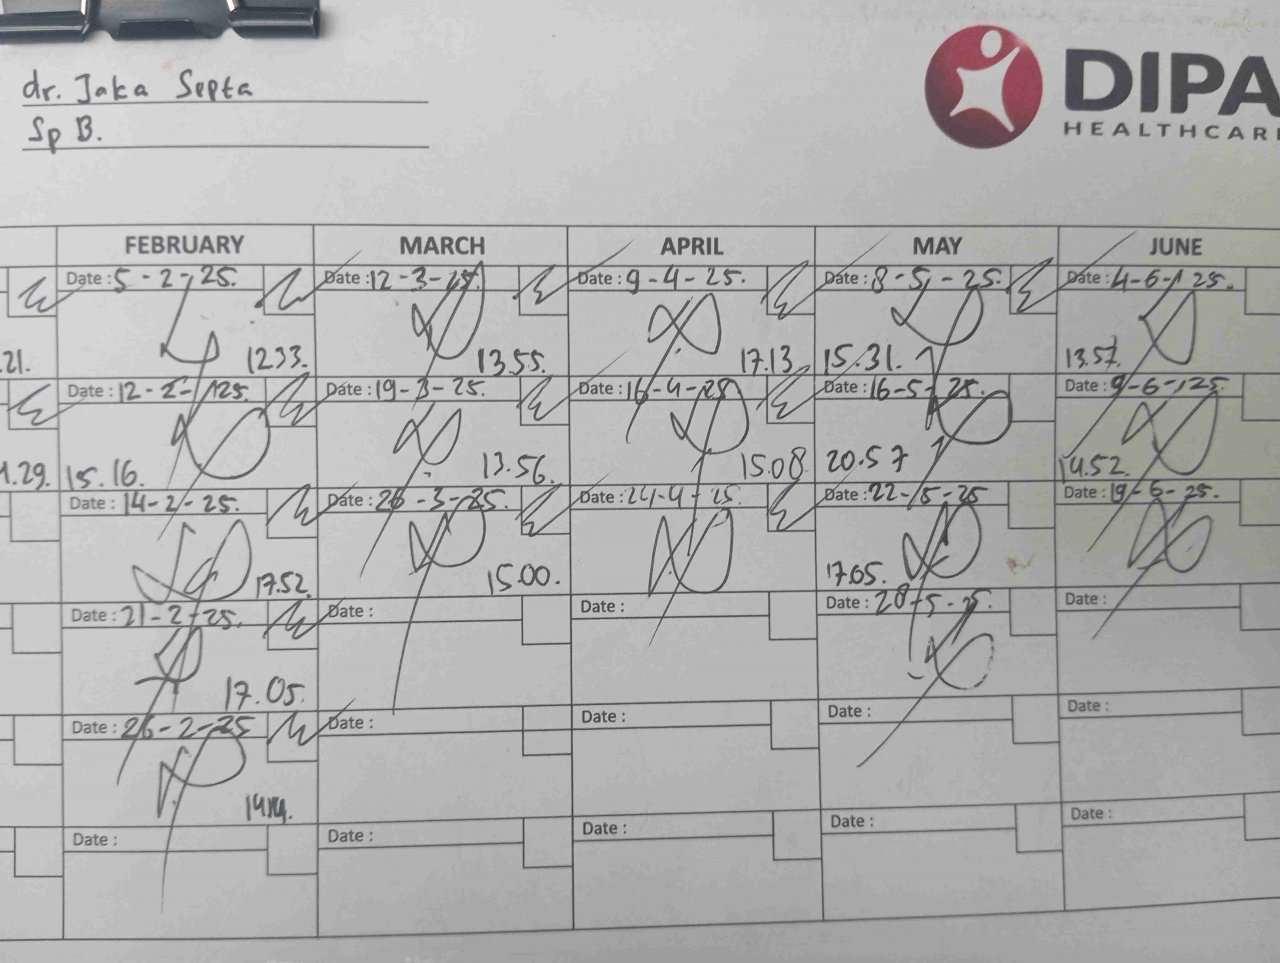 dr. Jaka Septa
Sp B.
DIPA
HEALTHCAR
FEBRUARY MARCH APRIL MAY JUNE
Date : 5-2-25. Date : 12-3-25. Date : 9-4-25. Date : 8-5-25. Date : 4-6-25.
.21. 12.33. 13.55. 17.13 15.31. 13.57.
Date : 12-2-25. Date : 19-3-25. Date : 16-4-25 Date : 16-5-25. Date : 9-6-25.
.29. 15.16. 13.56. 15.08 20.57 14.52.
Date : 14-2-25. Date : 26-3-25. Date : 24-4-25. Date : 22-5-25 Date : 19-6-25.
17.52. 15.00. 17.05.
Date : 21-2-25. Date : Date : Date : 28-5-25. Date :
17.05.
Date : 26-2-25 Date : Date : Date : Date :
Date : Date : Date : Date : Date :